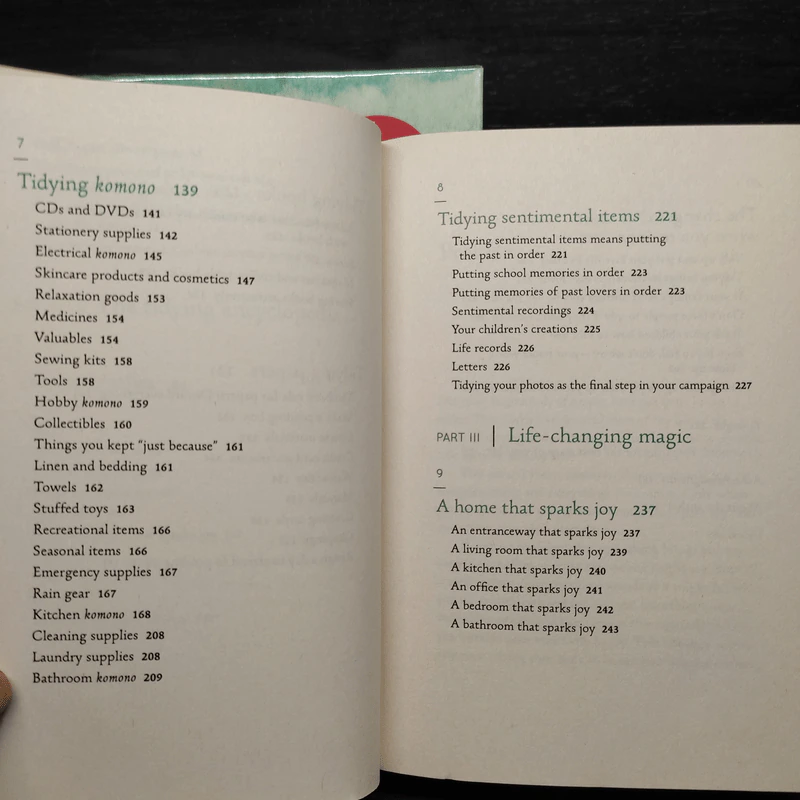 7
Tidying komono 139
CDs and DVDs 141
Stationery supplies 142
Electrical komono 145
Skincare products and cosmetics 147
Relaxation goods 153
Medicines 154
Valuables 154
Sewing kits 158
Tools 158
Hobby komono 159
Collectibles 160
Things you kept “just because” 161
Linen and bedding 161
Towels 162
Stuffed toys 163
Recreational items 166
Seasonal items 166
Emergency supplies 167
Rain gear 167
Kitchen komono 168
Cleaning supplies 208
Laundry supplies 208
Bathroom komono 209
8
Tidying sentimental items 221
Tidying sentimental items means putting
the past in order 221
Putting school memories in order 223
Putting memories of past lovers in order 223
Sentimental recordings 224
Your children’s creations 225
Life records 226
Letters 226
Tidying your photos as the final step in your campaign 227
PART III | Life-changing magic
9
A home that sparks joy 237
An entranceway that sparks joy 237
A living room that sparks joy 239
A kitchen that sparks joy 240
An office that sparks joy 241
A bedroom that sparks joy 242
A bathroom that sparks joy 243